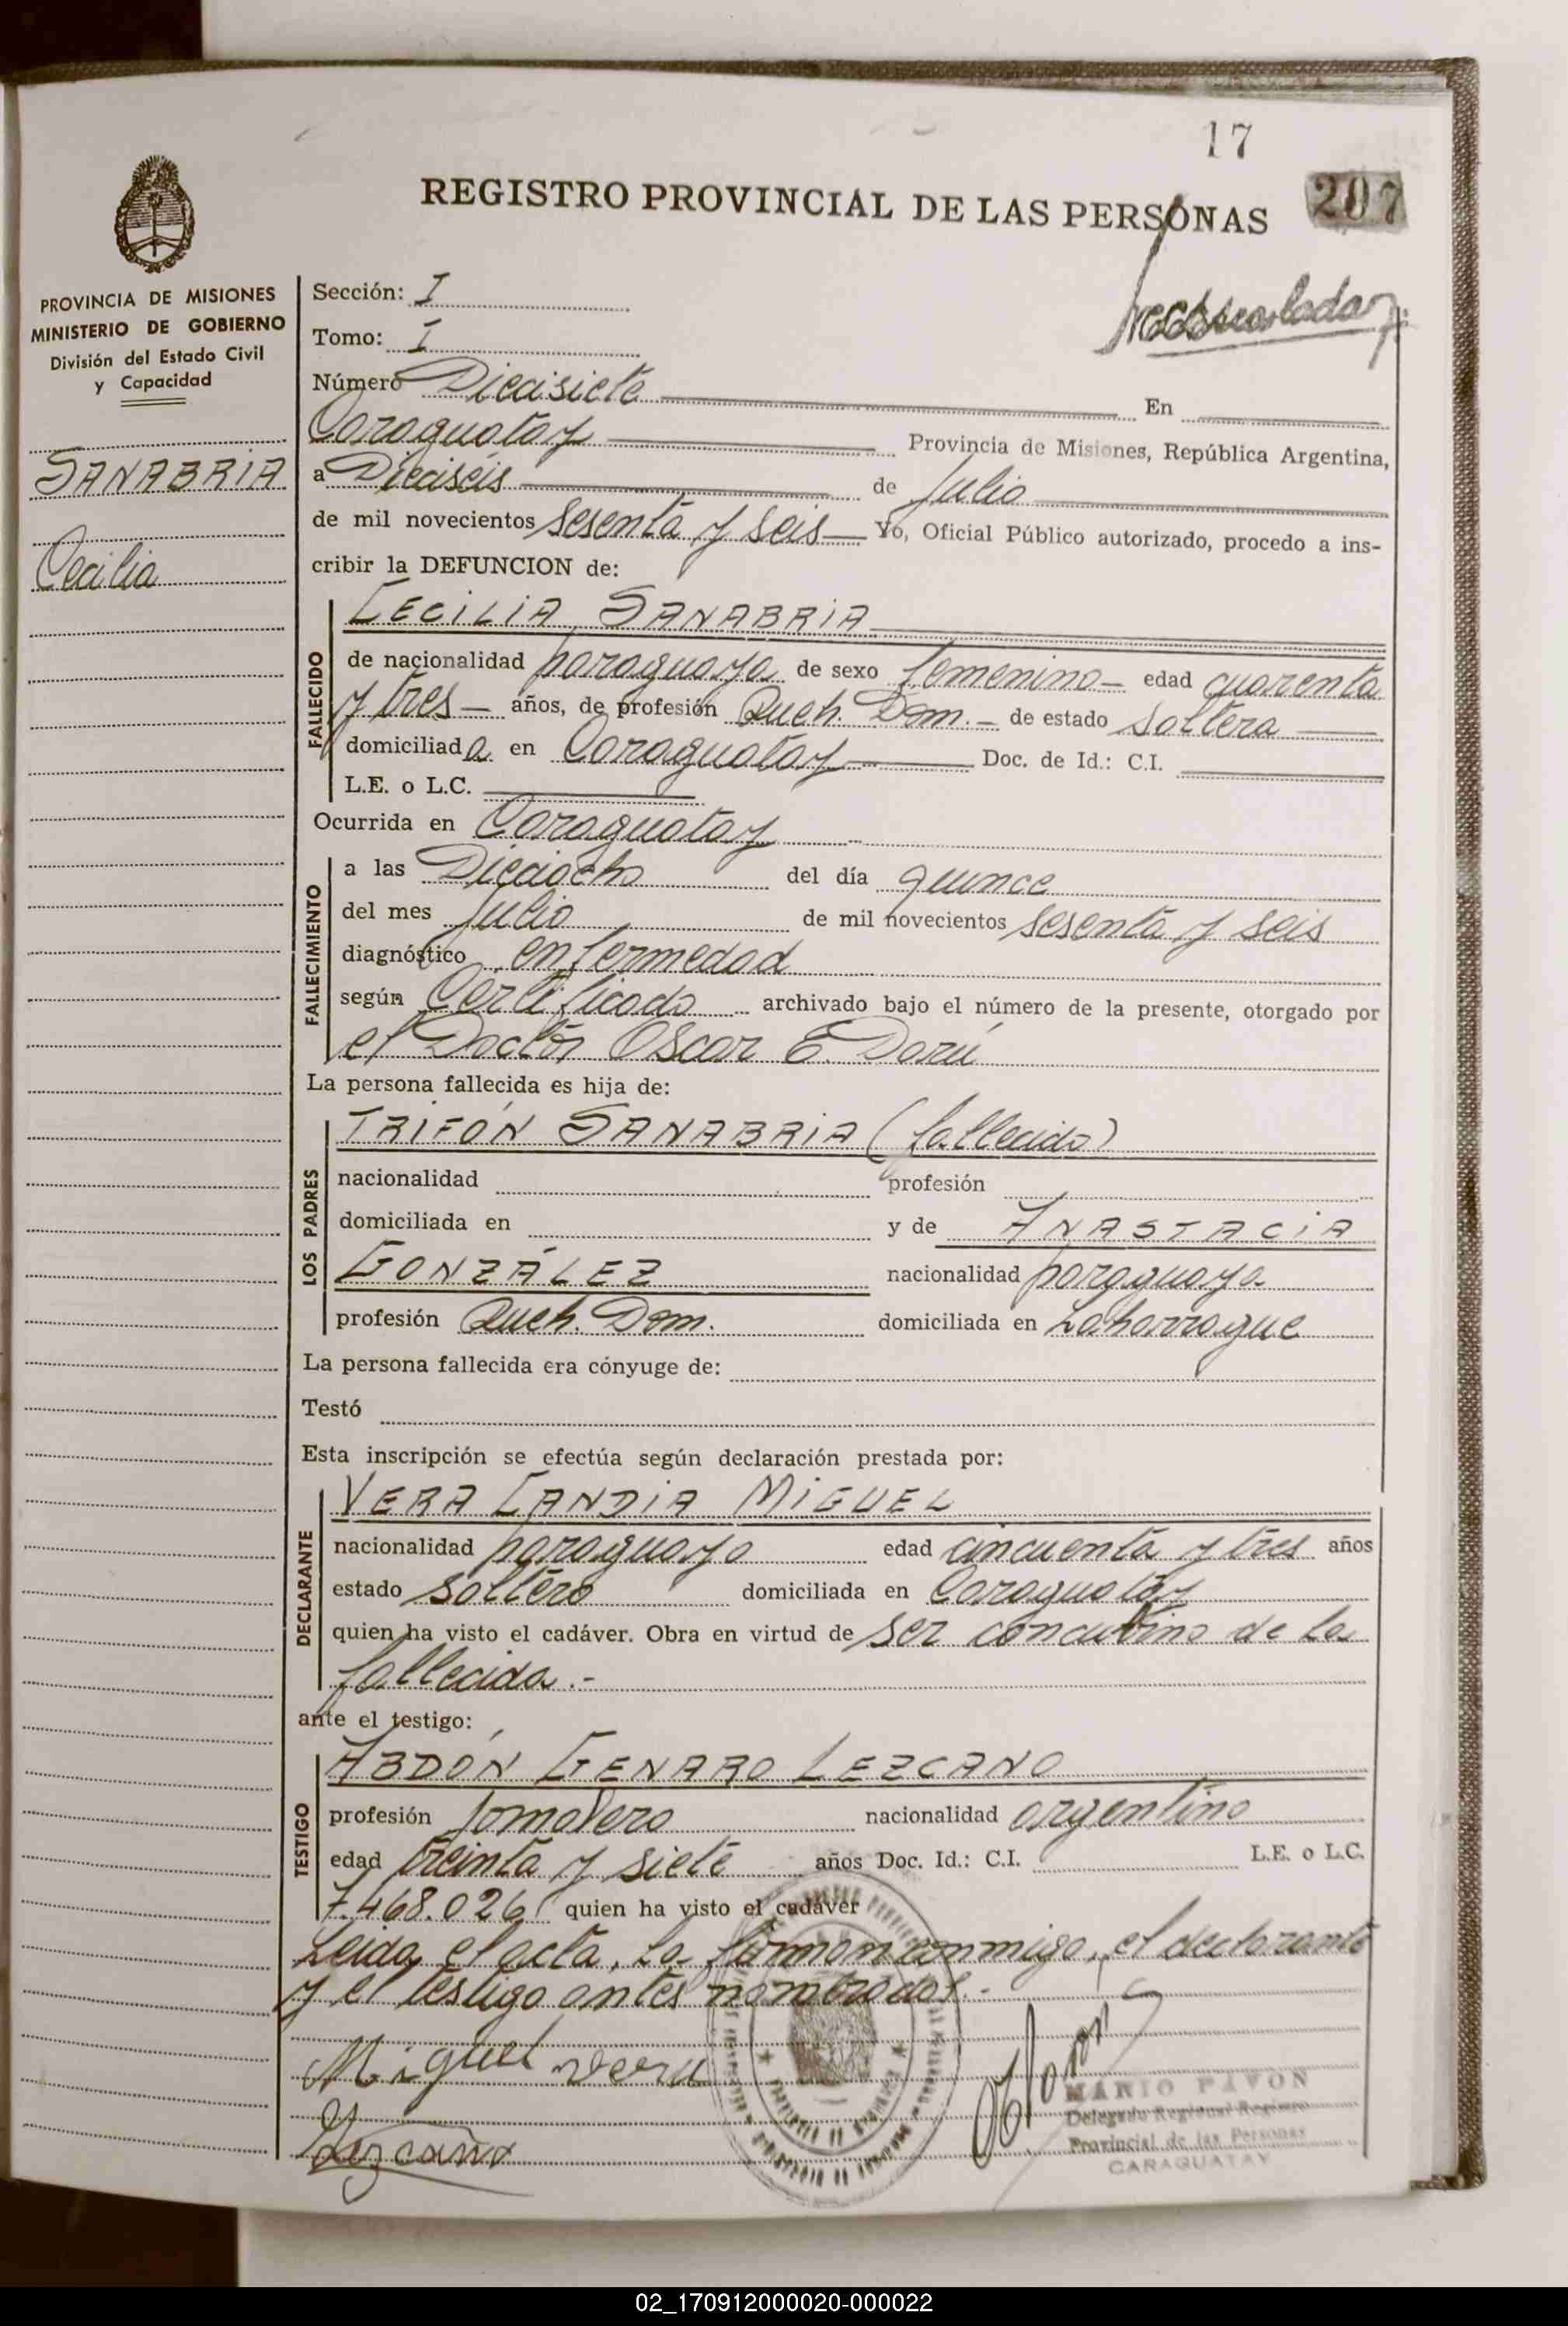 17
207
REGISTRO PROVINCIAL DE LAS PERSONAS
PROVINCIA DE MISIONES
MINISTERIO DE GOBIERNO
División del Estado Civil
y Capacidad
SANABRIA
Cecilia
Sección: I
Tomo: I
Número Diecisiete En
Caraguatay Provincia de Misiones, República Argentina,
a Dieciséis de Julio
de mil novecientos sesenta y seis Yo, Oficial Público autorizado, procedo a ins-
cribir la DEFUNCION de:
FALLECIDO
CECILIA SANABRIA
de nacionalidad paraguaya de sexo femenino edad cuarenta
y tres años, de profesión Queh. Dom. de estado soltera
domiciliada en Caraguatay Doc. de Id.: C.I.
L.E. o L.C.
Ocurrida en Caraguatay
FALLECIMIENTO
a las Dieciocho del día quince
del mes Julio de mil novecientos sesenta y seis
diagnóstico enfermedad
según Certificado archivado bajo el número de la presente, otorgado por
el Doctor Oscar E. Darú
La persona fallecida es hija de:
LOS PADRES
TRIFÓN SANABRIA (fallecido)
nacionalidad profesión
domiciliada en y de ANASTACIA
GONZÁLEZ nacionalidad paraguaya
profesión Queh. Dom. domiciliada en Laharrague
La persona fallecida era cónyuge de:
Testó
Esta inscripción se efectúa según declaración prestada por:
DECLARANTE
VERA CANDIA MIGUEL
nacionalidad paraguayo edad cincuenta y tres años
estado soltero domiciliada en Caraguatay
quien ha visto el cadáver. Obra en virtud de ser concubino de la
fallecida.-
ante el testigo:
TESTIGO
ABDÓN GENARO LEZCANO
profesión Jornalero nacionalidad argentino
edad treinta y siete años Doc. Id.: C.I. L.E. o L.C.
7.468.026 quien ha visto el cadáver
Leida el acta, la firman conmigo, el declarante
y el testigo antes nombrados.-
Miguel vera
Lezcano
MARIO PAVON
Delegado Regional Registro
Provincial de las Personas
CARAGUATAY
02_170912000020-000022